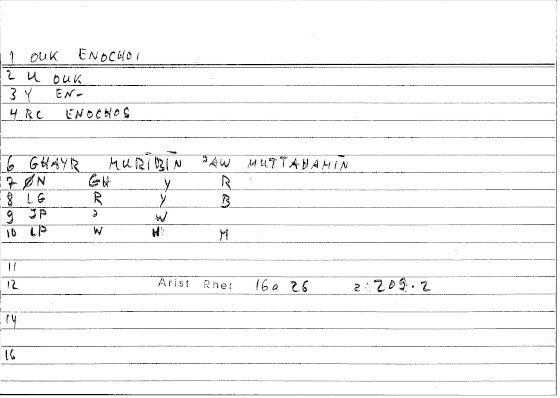 1 OUK ENOCHOI
2 U OUK
3 Y EN-
4 RC ENOCHOS
6 GHAYR MURĪBĪN ʾAW MUTTAHAMĪN
7 ØN GH Y R
8 LG R Y B
9 JP ʾ W
10 LP W H M
11
12 Arist Rhet 16a 26 z: 209.2
14
16